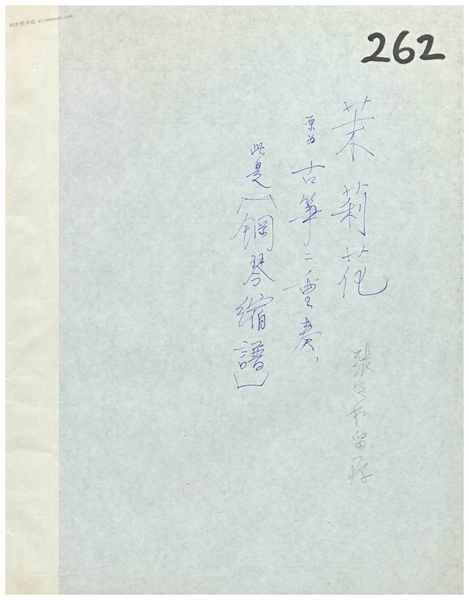 262
茉莉花
原為古箏二重奏、
此是〔鋼琴縮譜〕
張
留存